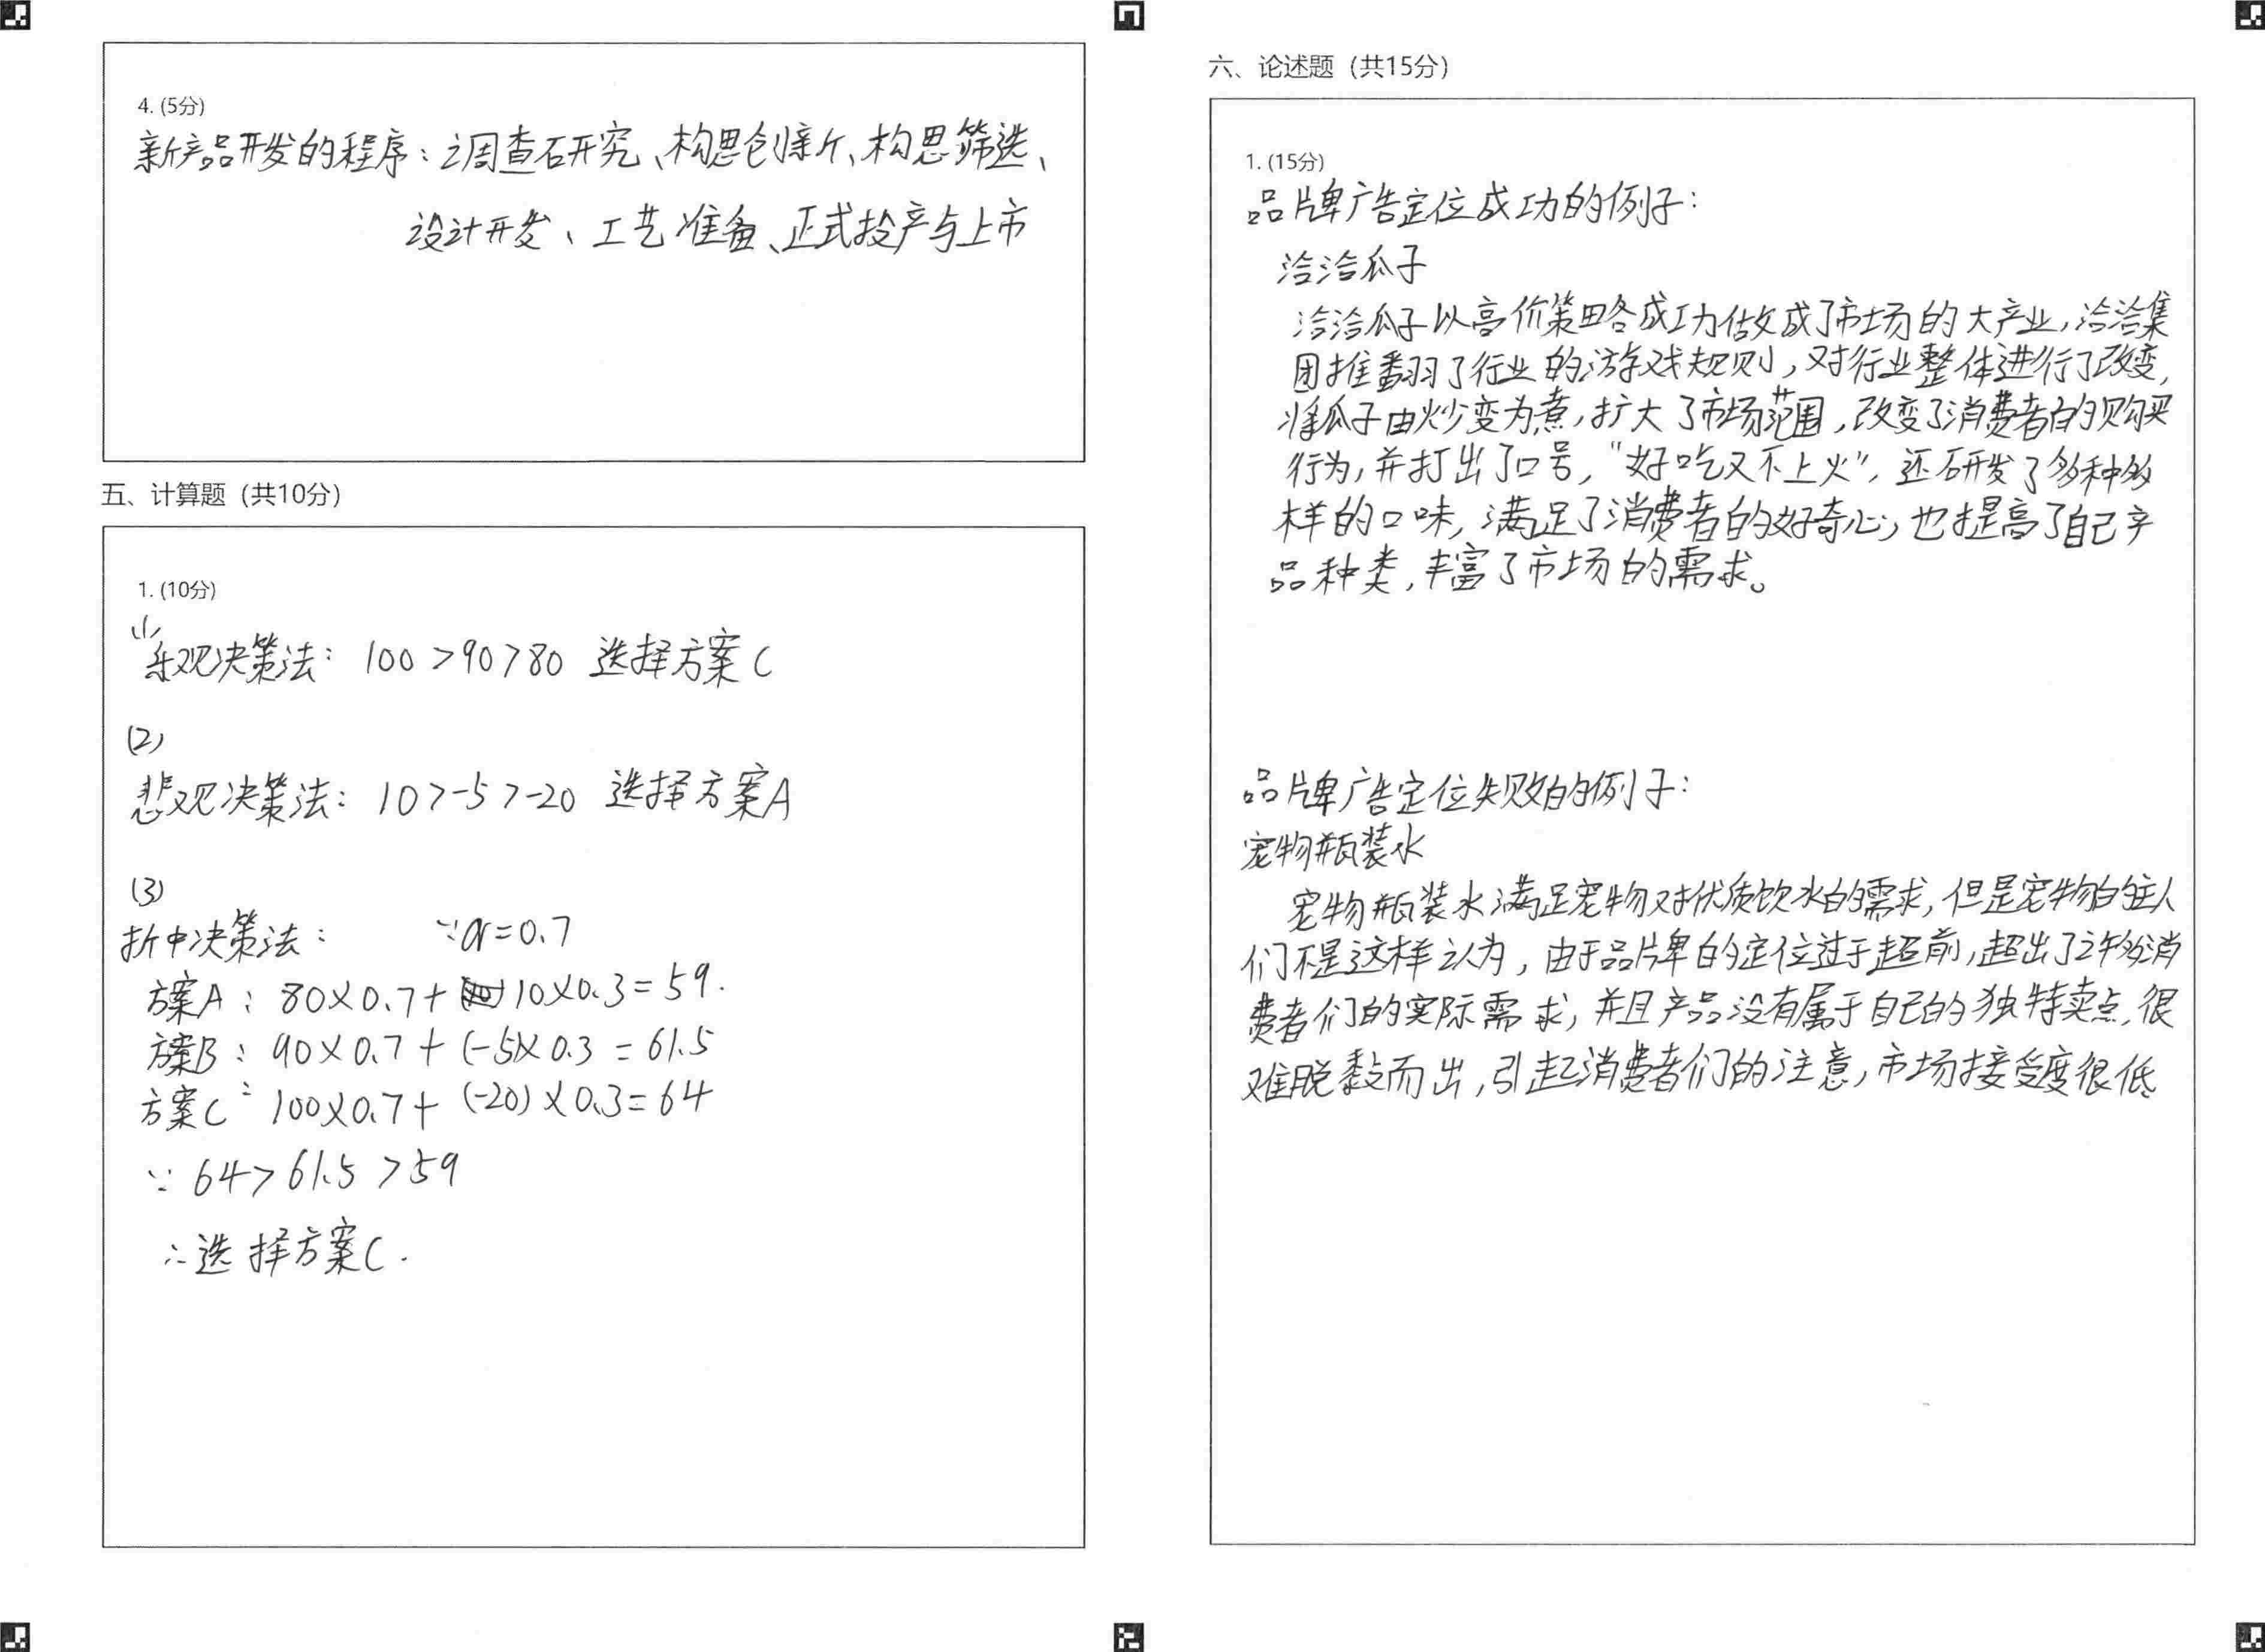 4. (5分)
新产品开发的程序：调查研究、构思创新、构思筛选、
设计开发、工艺准备、正式投产与上市
五、计算题（共10分）
1. (10分)
(1)
乐观决策法： 100 >90>80 选择方案C
(2)
悲观决策法： 10>-5>-20 选择方案A
(3)
折中决策法： ∵α=0.7
方案A： 80×0.7+10×0.3=59.
方案B： 90×0.7+(-5)×0.3=61.5
方案C： 100×0.7+(-20)×0.3=64
∵ 64>61.5>59
∴选择方案C.
六、论述题（共15分）
1. (15分)
品牌广告定位成功的例子：
洽洽瓜子
洽洽瓜子以高价策略成功做成了市场的大产业，洽洽集
团推翻了行业的游戏规则，对行业整体进行了改变，
将瓜子由炒变为煮，扩大了市场范围，改变了消费者的购买
行为，并打出了口号，“好吃又不上火”，还研发了多种多
样的口味，满足了消费者的好奇心，也提高了自己产
品种类，丰富了市场的需求。
品牌广告定位失败的例子：
宠物瓶装水
宠物瓶装水满足宠物对优质饮水的需求，但是宠物的主人
们不是这样认为，由于品牌的定位过于超前，超出了许多消
费者们的实际需求，并且产品没有属于自己的独特卖点，很
难脱颖而出，引起消费者们的注意，市场接受度很低